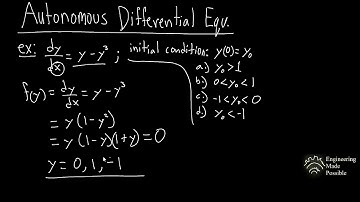 Autonomous Differential Equ.
ex: dy/dx = y - y³ ; initial condition: y(0) = y₀
a.) y₀ > 1
b.) 0 < y₀ < 1
c.) -1 < y₀ < 0
d.) y₀ < -1
f(y) = dy/dx = y - y³
= y (1 - y²)
= y (1 - y)(1 + y) = 0
y = 0, 1, -1
Engineering
Made
Possible